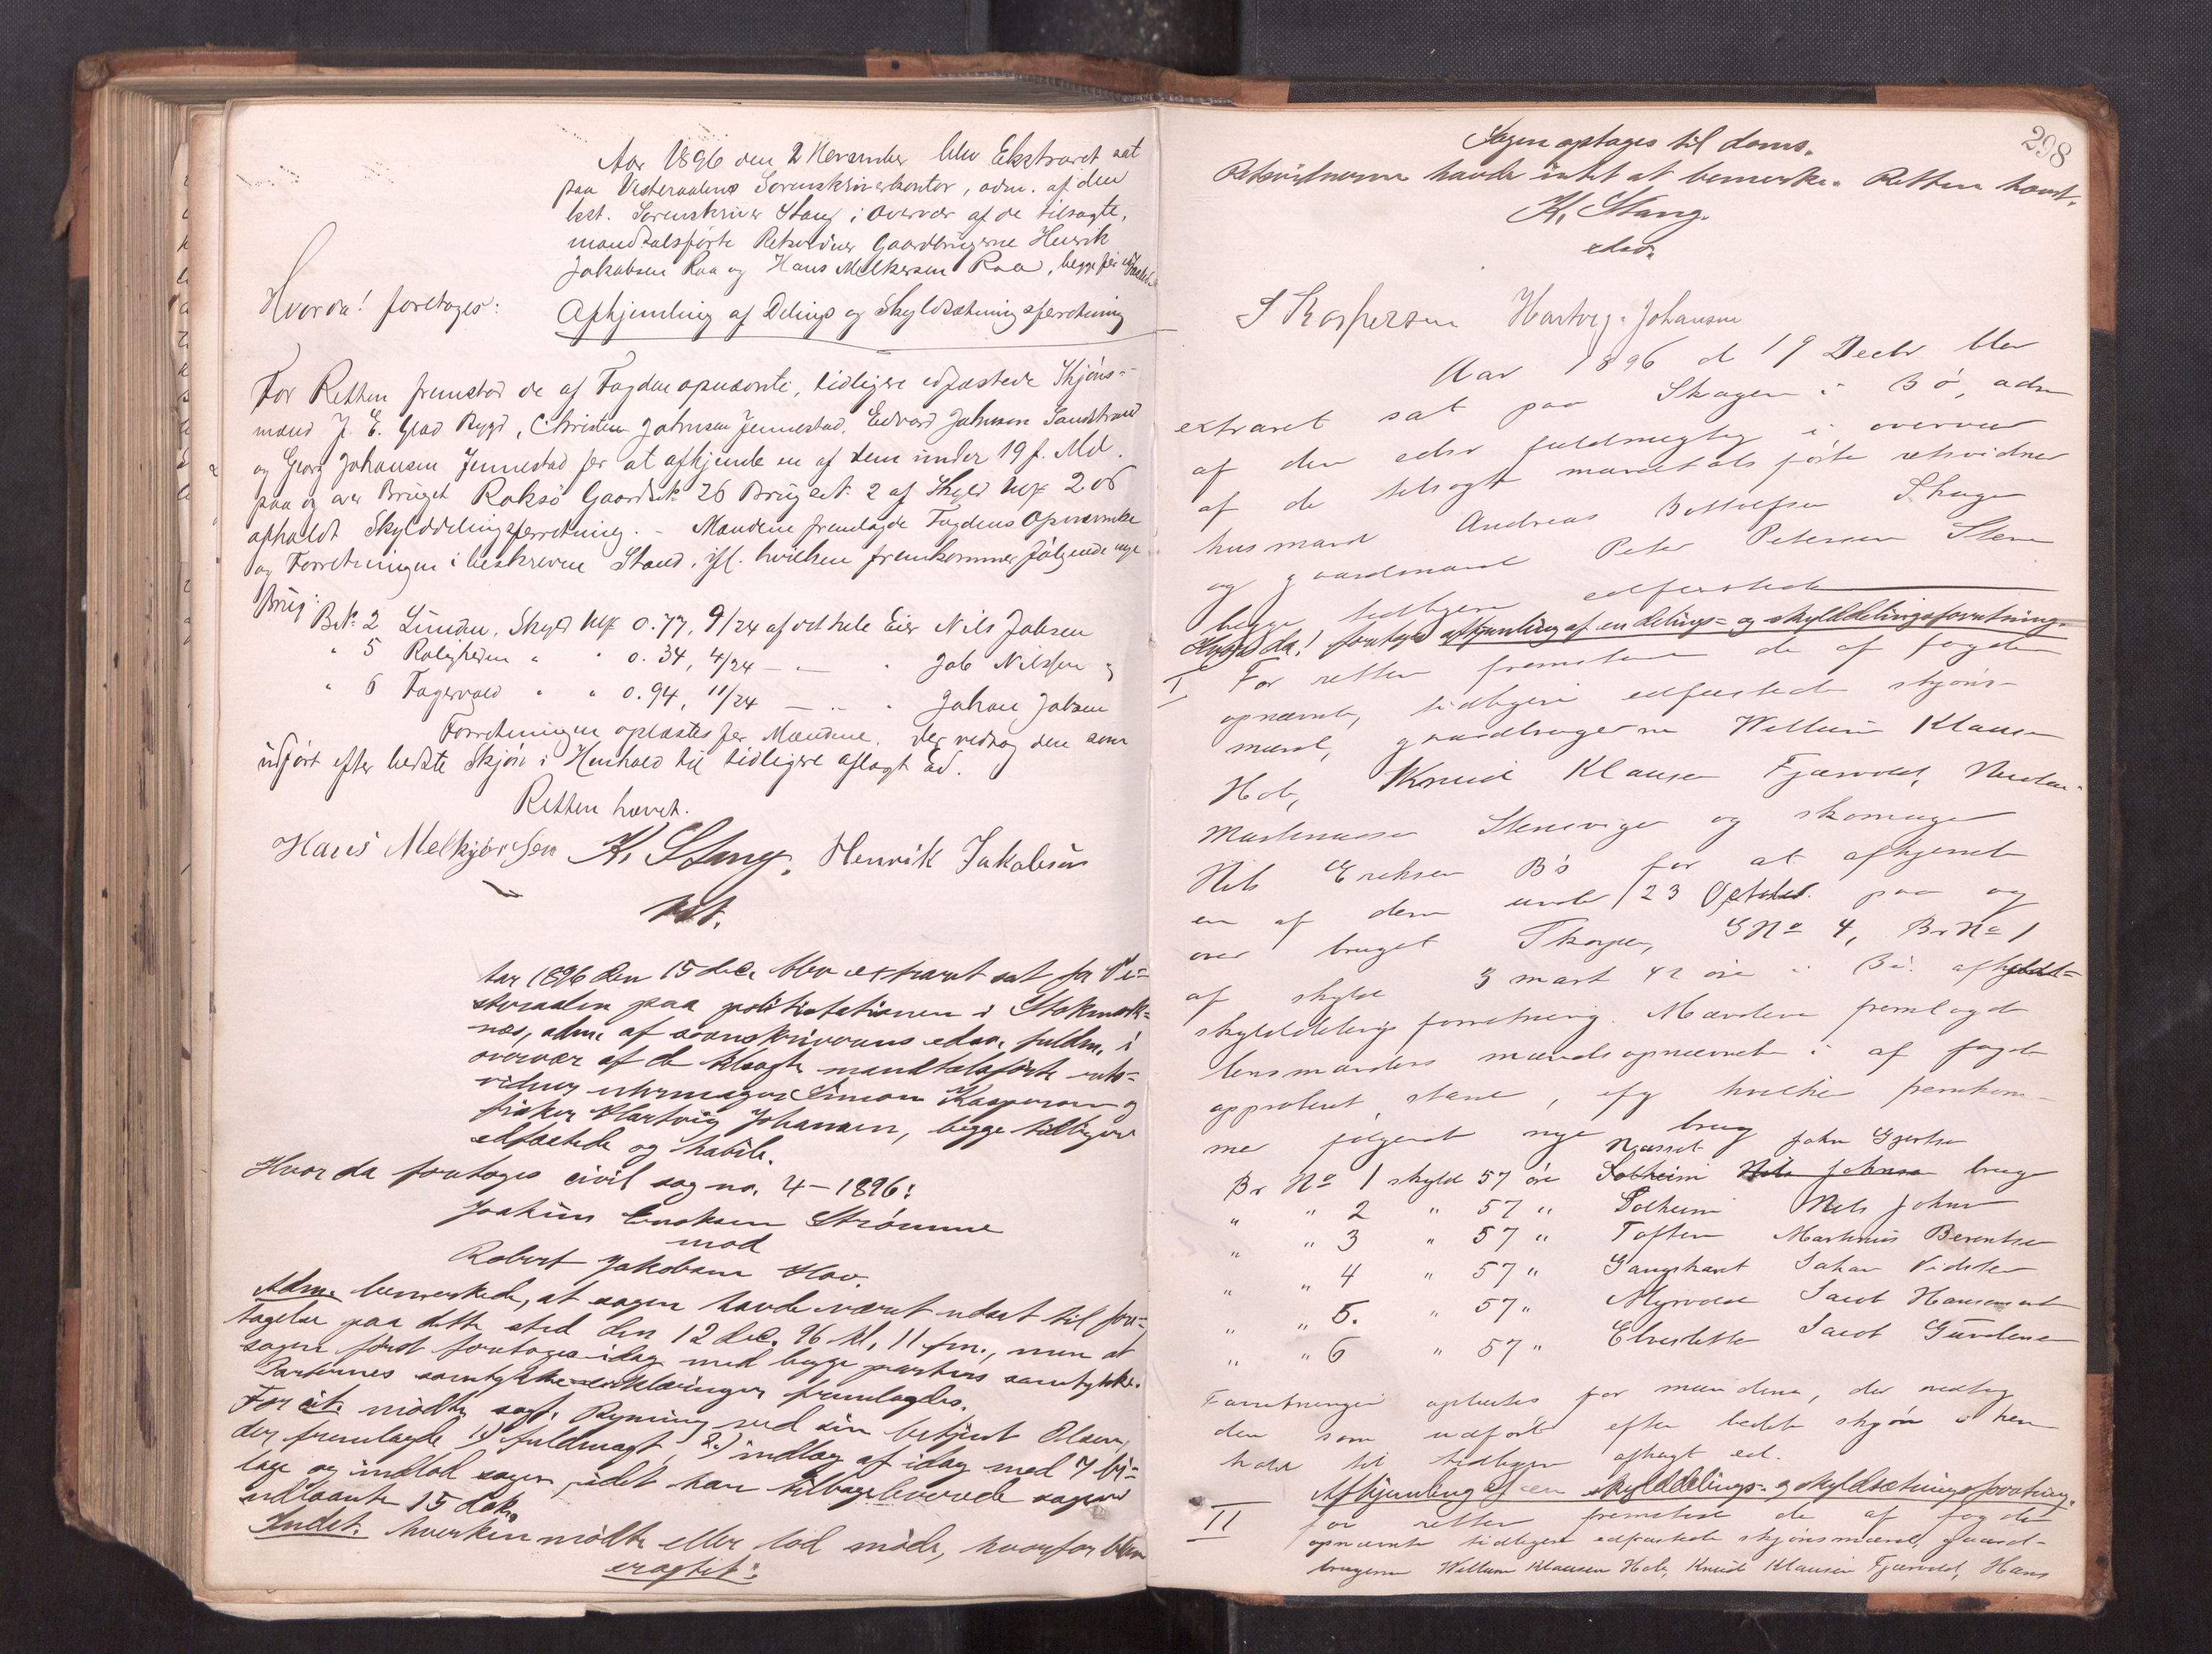 Aar 1896 den 2 November blev Ekstraret sat
paa Vesteraalens Sorenskriverkontor, adm. af den
kst. Sorenskriver Stang i Overvær af de tilsagte,
mandtalsførte Retsvidner Gaardbrugerne Henrik
Jakobsen Raa og Hans Melkersen Raa, begge før
Hvorda! foretoges:
Afhjemling af Delings og Skyldsætningsforretning
For Retten fremstod de af Fogden opnævnte, tidligere edfæstede Skjøns-
mænd J. E. Grød Rygd, Christian Johnsen Jennestad, Edvard Johnson Sandstrand
og Georg Johansen Jennestad for at afhjemle en af dem under 19 f. Md.
paa og over Bruget Roksø Gaardsn: 26 Brugsn: 2 af Skyld Mk 2.05
afholdt Skylddelingsforretning. - Mændene fremlagde Fogdens Opnævnelse
og Forretningen i beskreven Stand, ifl. hvilken fremkommer følgende nye
Brug:
B.N. 2 Linden, Skyld Mk 0.77, 9/24 af det hele Eier Nils Jobsen
" 5 Roligheden " " 0.34, 4/24 — " — " Job Nilssen og
" 6 Fagervold " " 0.94, 11/24 — " — " Johan Jobsen
Forretningen oplæstes for Mændene, der vedtog den som
udført efter bedste Skjøn i Henhold til tidligere aflagt Ed.
Retten hævet.
Hans Melkjørsen K. Stang. Henrik Jakobsen
kst.
Aar 1896 den 15 dec. blev extraret sat for Ve-
steraalen paa politistationen i Stokmark-
næs, adm. af sorenskriverens edsv. fuldm. i
overvær af de tilsagte mandtalsførte rets-
vidner uhrmager Simon Kaspersen og
fisker Hartvig Johansen, begge tidligere
edfæstede og habile.
Hvor da foretoges civil sag no. 4 - 1896:
Joakim Enoksen Strømme
mod
Robert Jakobsen Hov.
Adm. bemerkede, at sagen havde været udsat til fore-
tagelse paa dette sted den 12 dec. 96 kl. 11 fm., men at
sagen først foretoges idag med begge parters samtykke.
Parternes samtykkeerklæringer fremlagdes.
For cit. mødte sagf. Ryning ved sin betjent Olsen,
der fremlagde 1) fuldmagt, 2.) indlæg af idag med 7 bi-
lage og indlod sagen, idet han tilbageleverede sagens
udlaante 15 dok.
Indst. hverken mødte eller lod møde, hvorfor blev
eragtet:
298
Sagen optages til doms.
Retsvidnerne havde intet at bemerke. Retten hævet.
K. Stang.
edsv.
S Kaspersen Hartvig Johansen
Aar 1896 d 19 Decbr blev
extraret sat paa Skagen i Bø, adm
af den edsv fuldmegtig i overvær
af de tilsagte mandtalsførte retsvidner
husmand Andreas Bottolfsen Skagen
og gaardmand Peter Petersen Steen
begge tidligere edfæstede
Hvor da! foretoges afhjemling af en delings- og skylddelingsforretning.
I For retten fremstod de af fogden
opnævnte, tidligere edfæstede skjøns-
mænd, gaardbrugerne Willum Klausen
Hob, Knud Klausen Fjærvold,
Martinussen Steinsvigen og skomager
Nils Eriksen Bø for at afhjemle
en af dem under 23 October paa og
over bruget Skagen, GNo 4, BrNo 1
af skyld 3 mark 42 øre i Bø afholdt
skylddelings forretning. Mændene fremlagde
lensmandens mandsopnævnelse i af fogden
approberet stand, ifg hvilken fremkom-
mer følgende nye brug
Br No 1 skyld 57 øre Solheim Næsset Nils Johnsen John Gjertsen bruger
" " 2 " 57 " Solheim Nils Johnsen
" " 3 " 57 " Toften Martinus Berentsen
" " 4 " 57 " Johan Vidsten
" " 5. " 57 " Myrvold Jacob Hansen
" " 6 " 57 " Elvesletten Jacob Gundersen
Forretningen oplæstes for mændene, der vedtog
den som udført efter bedste skjøn i hen
hold til tidligere aflagt ed.
Afhjemling af en skylddelings- og skyldsætningsforretning.
II For retten fremstod de af fogden
opnævnte tidligere edfæstede skjønsmænd, gaard-
brugerne Willum Klausen Hob, Knud Klausen Fjærvold, Hans